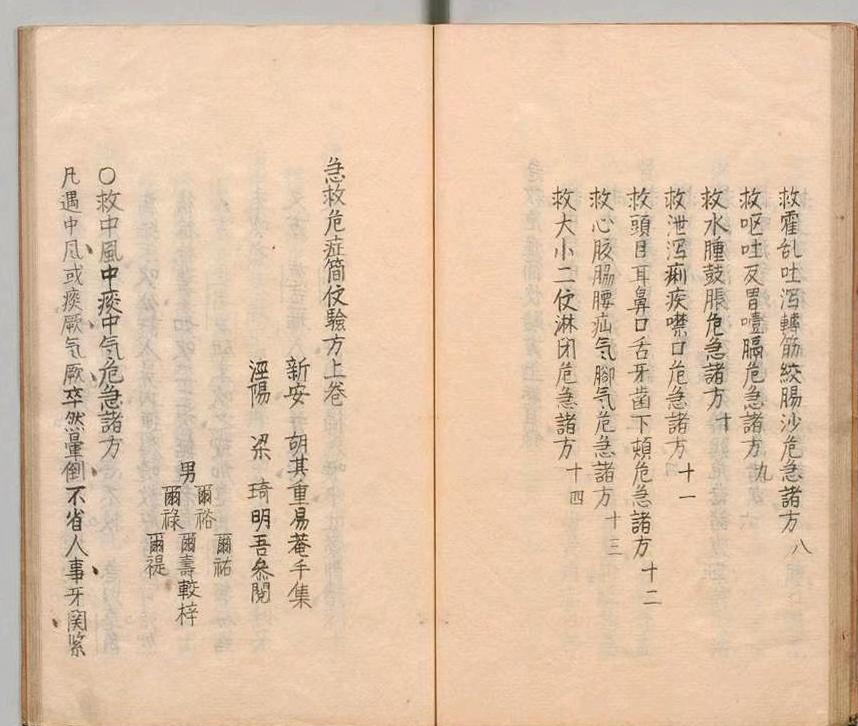 救霍乱吐泻轉筋絞腸沙危急諸方 八
救呕吐反胃噎膈危急諸方 九
救水腫鼓脹危急諸方 十
救泄泻痢疾噤口危急諸方 十一
救頭目耳鼻口舌牙齒下頰危急諸方 十二
救心腹脇腰疝气腳气危急諸方 十三
救大小二便淋閉危急諸方 十四
急救危症简便驗方上卷
新安 胡其重易菴手集
涇陽 梁 琦明吾叅閱
爾祐
爾裕 爾壽
男 較梓
爾祿 爾禔
○救中風中痰中气危急諸方
凡遇中风或痰厥气厥卒然暈倒不省人事牙関紧